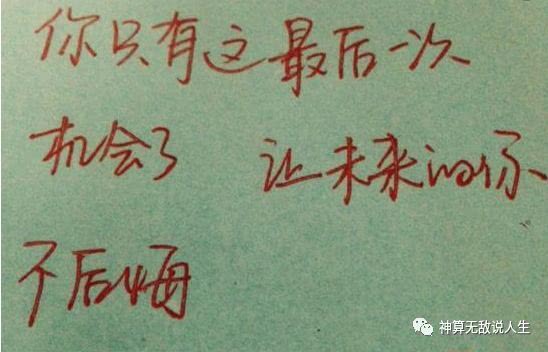 你只有这最后一次
机会了 让未来的你
不后悔
神算无敌说人生